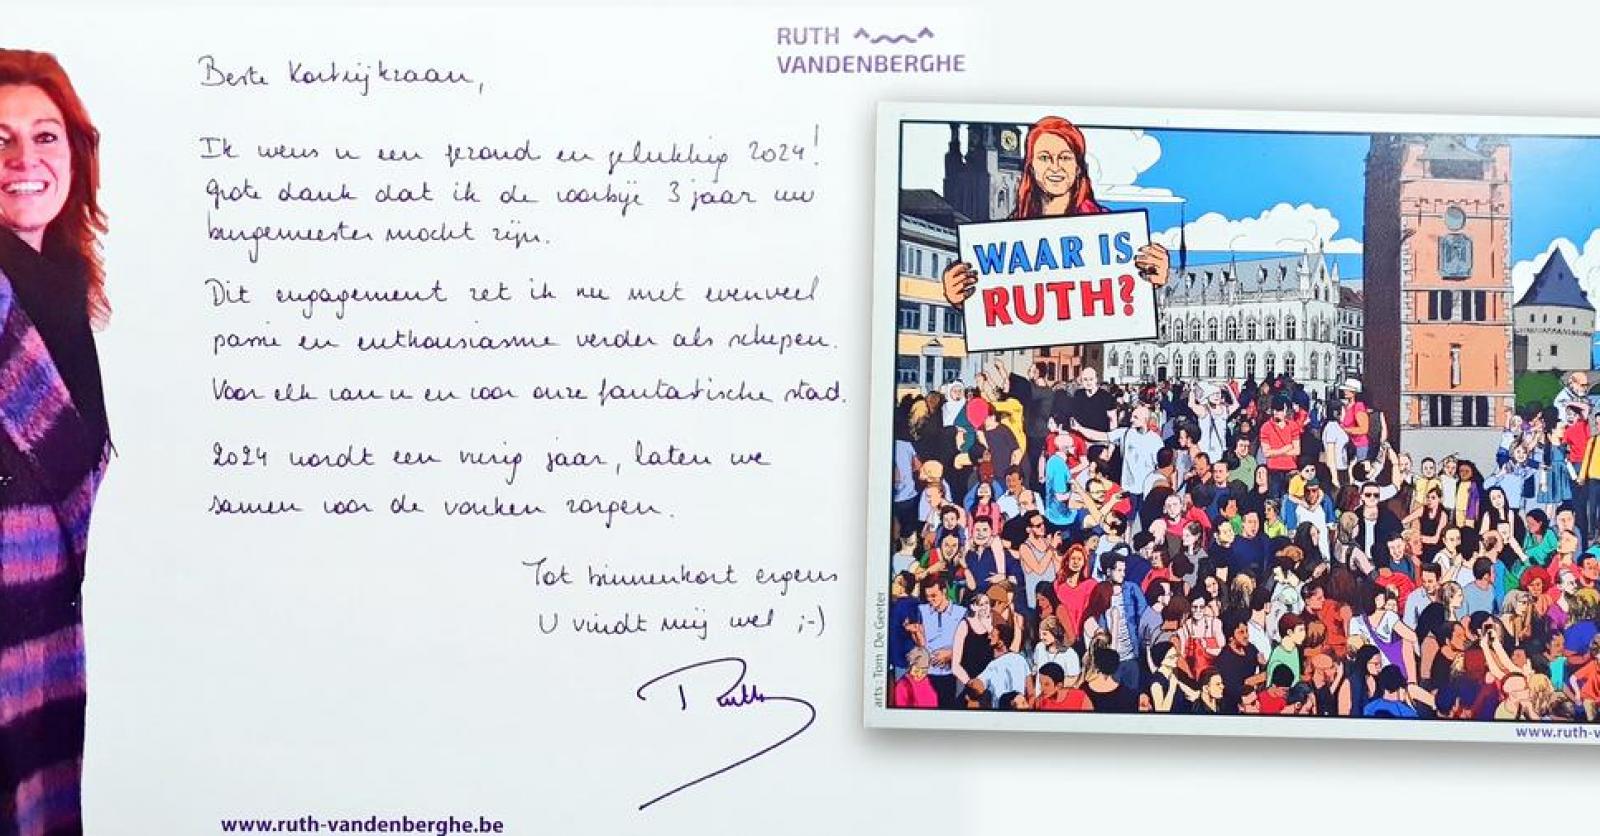 RUTH
VANDENBERGHE
Beste Kortrijkzaan,
Ik wens u een gezond en gelukkig 2024!
Grote dank dat ik de voorbije 3 jaar uw
burgemeester mocht zijn.
Dit engagement zet ik nu met evenveel
passie en enthousiasme verder als schepen.
Voor elk van u en voor onze fantastische stad.
2024 wordt een vurig jaar, laten we
samen voor de vonken zorgen.
Tot binnenkort ergens
U vindt mij wel ;-)
Ruth
www.ruth-vandenberghe.be
WAAR IS
RUTH?
arts: Tom De Geeter
www.ruth-v